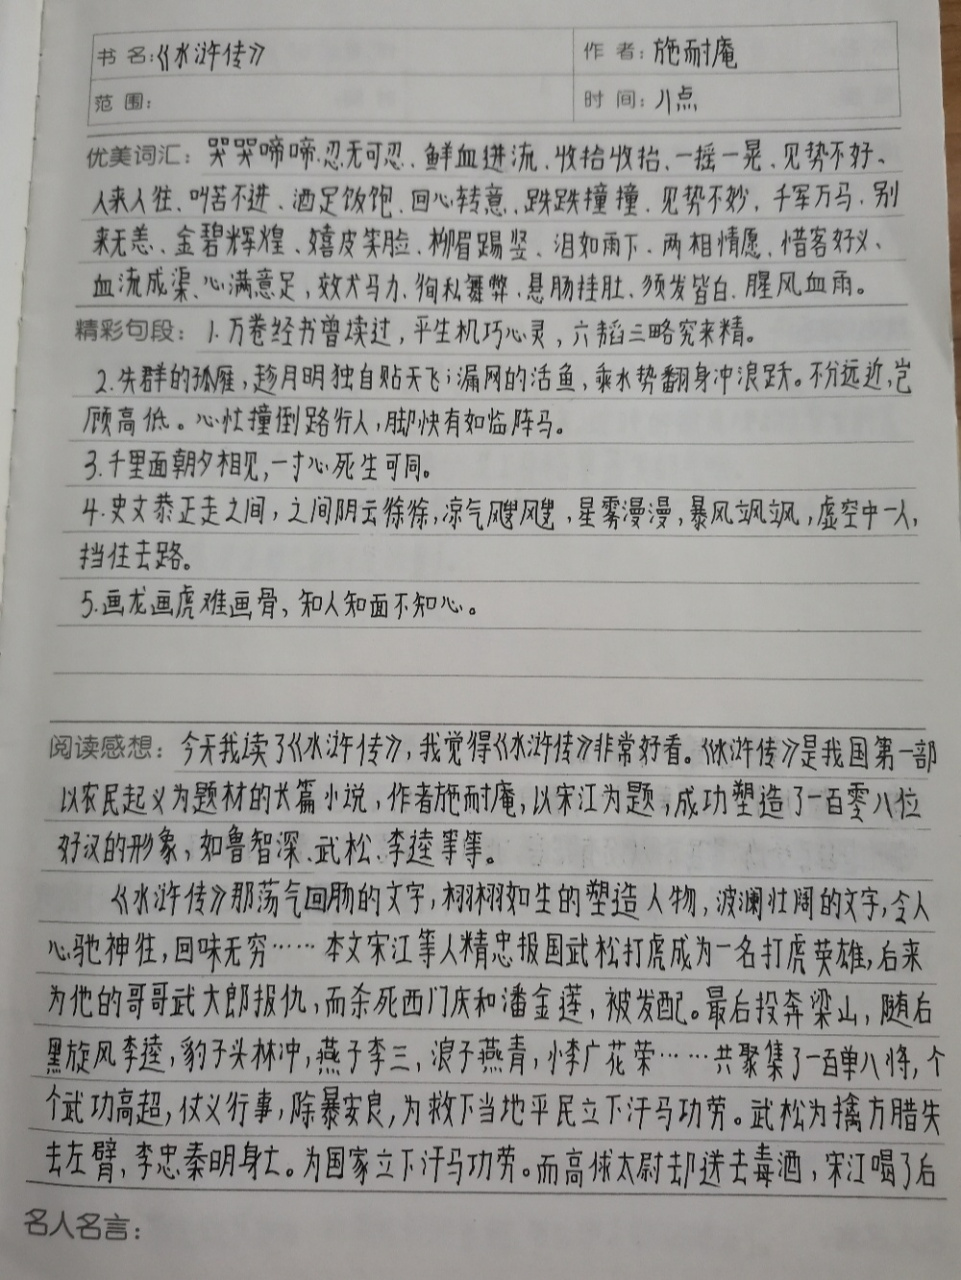 书名:《水浒传》 作者:施耐庵
范围: 时间:八点
优美词汇:哭哭啼啼、忍无可忍、鲜血迸流、收拾收拾、一摇一晃、见势不好、
人来人往、叫苦不迭、酒足饭饱、回心转意、跌跌撞撞、见势不妙、千军万马、别
来无恙、金碧辉煌、嬉皮笑脸、柳眉踢竖、泪如雨下、两相情愿、惜客好义、
血流成渠、心满意足,效犬马力、徇私舞弊、悬肠挂肚、须发皆白、腥风血雨。
精彩句段:1.万卷经书曾读过,平生机巧心灵,六韬三略究来精。
2.失群的孤雁,趁月明独自贴天飞;漏网的活鱼,乘水势翻身冲浪跃。不分远近,岂
顾高低。心忙撞倒路行人,脚快有如临阵马。
3.千里面朝夕相见,一寸心死生可同。
4.史文恭正走之间,之间阴云徐徐,凉气飕飕,星雾漫漫,暴风飒飒,虚空中一人,
挡住去路。
5.画龙画虎难画骨,知人知面不知心。
阅读感想:今天我读了《水浒传》,我觉得《水浒传》非常好看。《水浒传》是我国第一部
以农民起义为题材的长篇小说,作者施耐庵,以宋江为题,成功塑造了一百零八位
好汉的形象,如鲁智深、武松、李逵等等。
《水浒传》那荡气回肠的文字,栩栩如生的塑造人物,波澜壮阔的文字,令人
心驰神往,回味无穷……本文宋江等人精忠报国武松打虎成为一名打虎英雄,后来
为他的哥哥武大郎报仇,而杀死西门庆和潘金莲,被发配。最后投奔梁山,随后
黑旋风李逵,豹子头林冲,燕子李三,浪子燕青,小李广花荣……共聚集了一百单八将,个
个武功高超,仗义行事,除暴安良,为救下当地平民立下汗马功劳。武松为擒方腊失
去左臂,李忠秦明身亡。为国家立下汗马功劳。而高俅太尉却送去毒酒,宋江喝了后
名人名言: